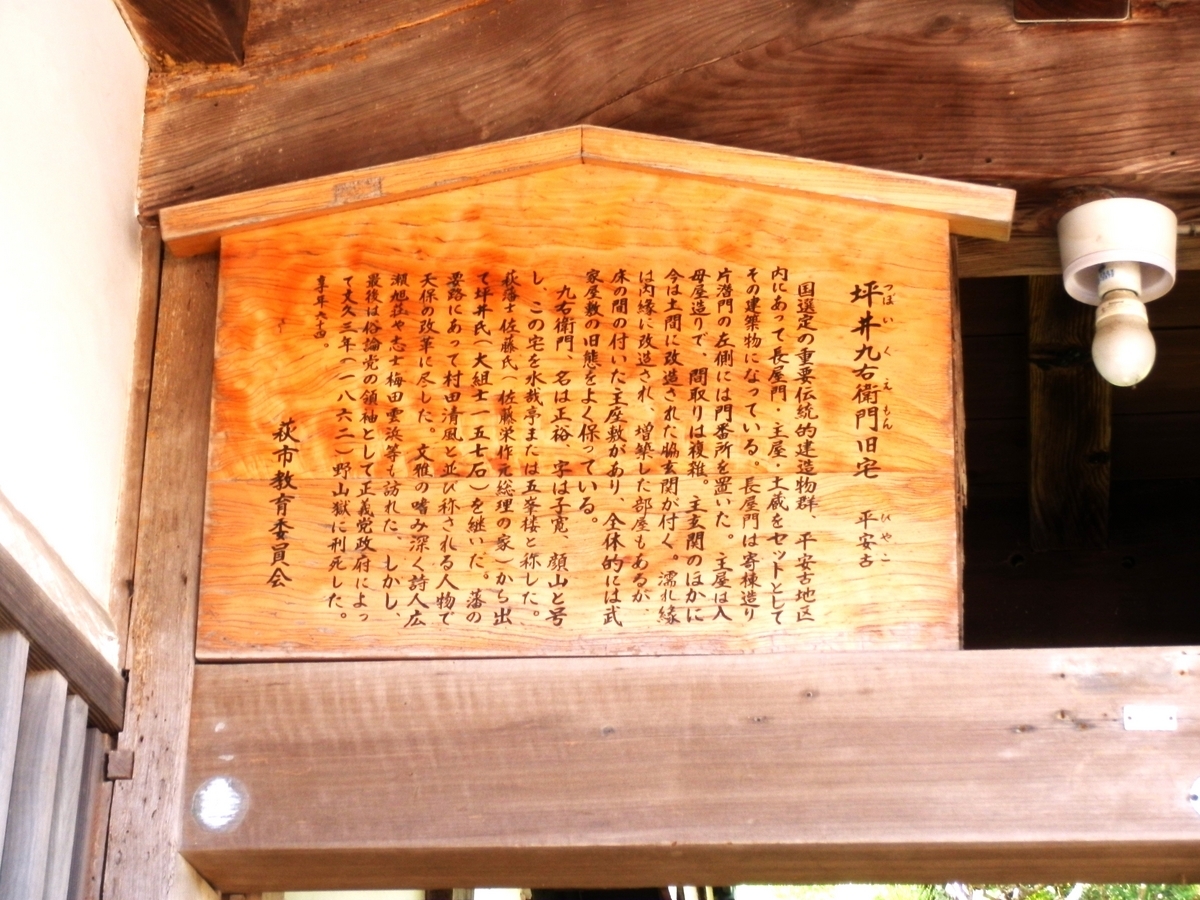 坪井九右衛門旧宅 平安古
つぼい くえもん ひやこ
国選定の重要伝統的建造物群、平安古地区
内にあって長屋門・主屋・土蔵をセットとして
その建築物になっている。長屋門は寄棟造り
片潜門の左側には門番所を置いた。主屋は入
母屋造りで、間取りは複雑。主玄関のほかに
今は土間に改造された脇玄関が付く。濡れ縁
は内縁に改造され、増築した部屋もあるが、
床の間の付いた主座敷があり、全体的には武
家屋敷の旧態をよく保っている。
九右衛門、名は正裕、字は子寛、顔山と号
し、この宅を水哉亭または五峯楼と称した。
萩藩士佐藤氏(佐藤栄作元総理の家)から出
て坪井氏(大組士一五七石)を継いだ。藩の
要路にあって村田清風と並び称される人物で
天保の改革に尽した。文雅の嗜み深く詩人広
瀬旭荘や志士梅田雲浜等も訪れた。しかし、
最後は俗論党の領袖として正義党政府によっ
て文久三年(一八六二)野山獄に刑死した。
享年六十四。
萩市教育委員会